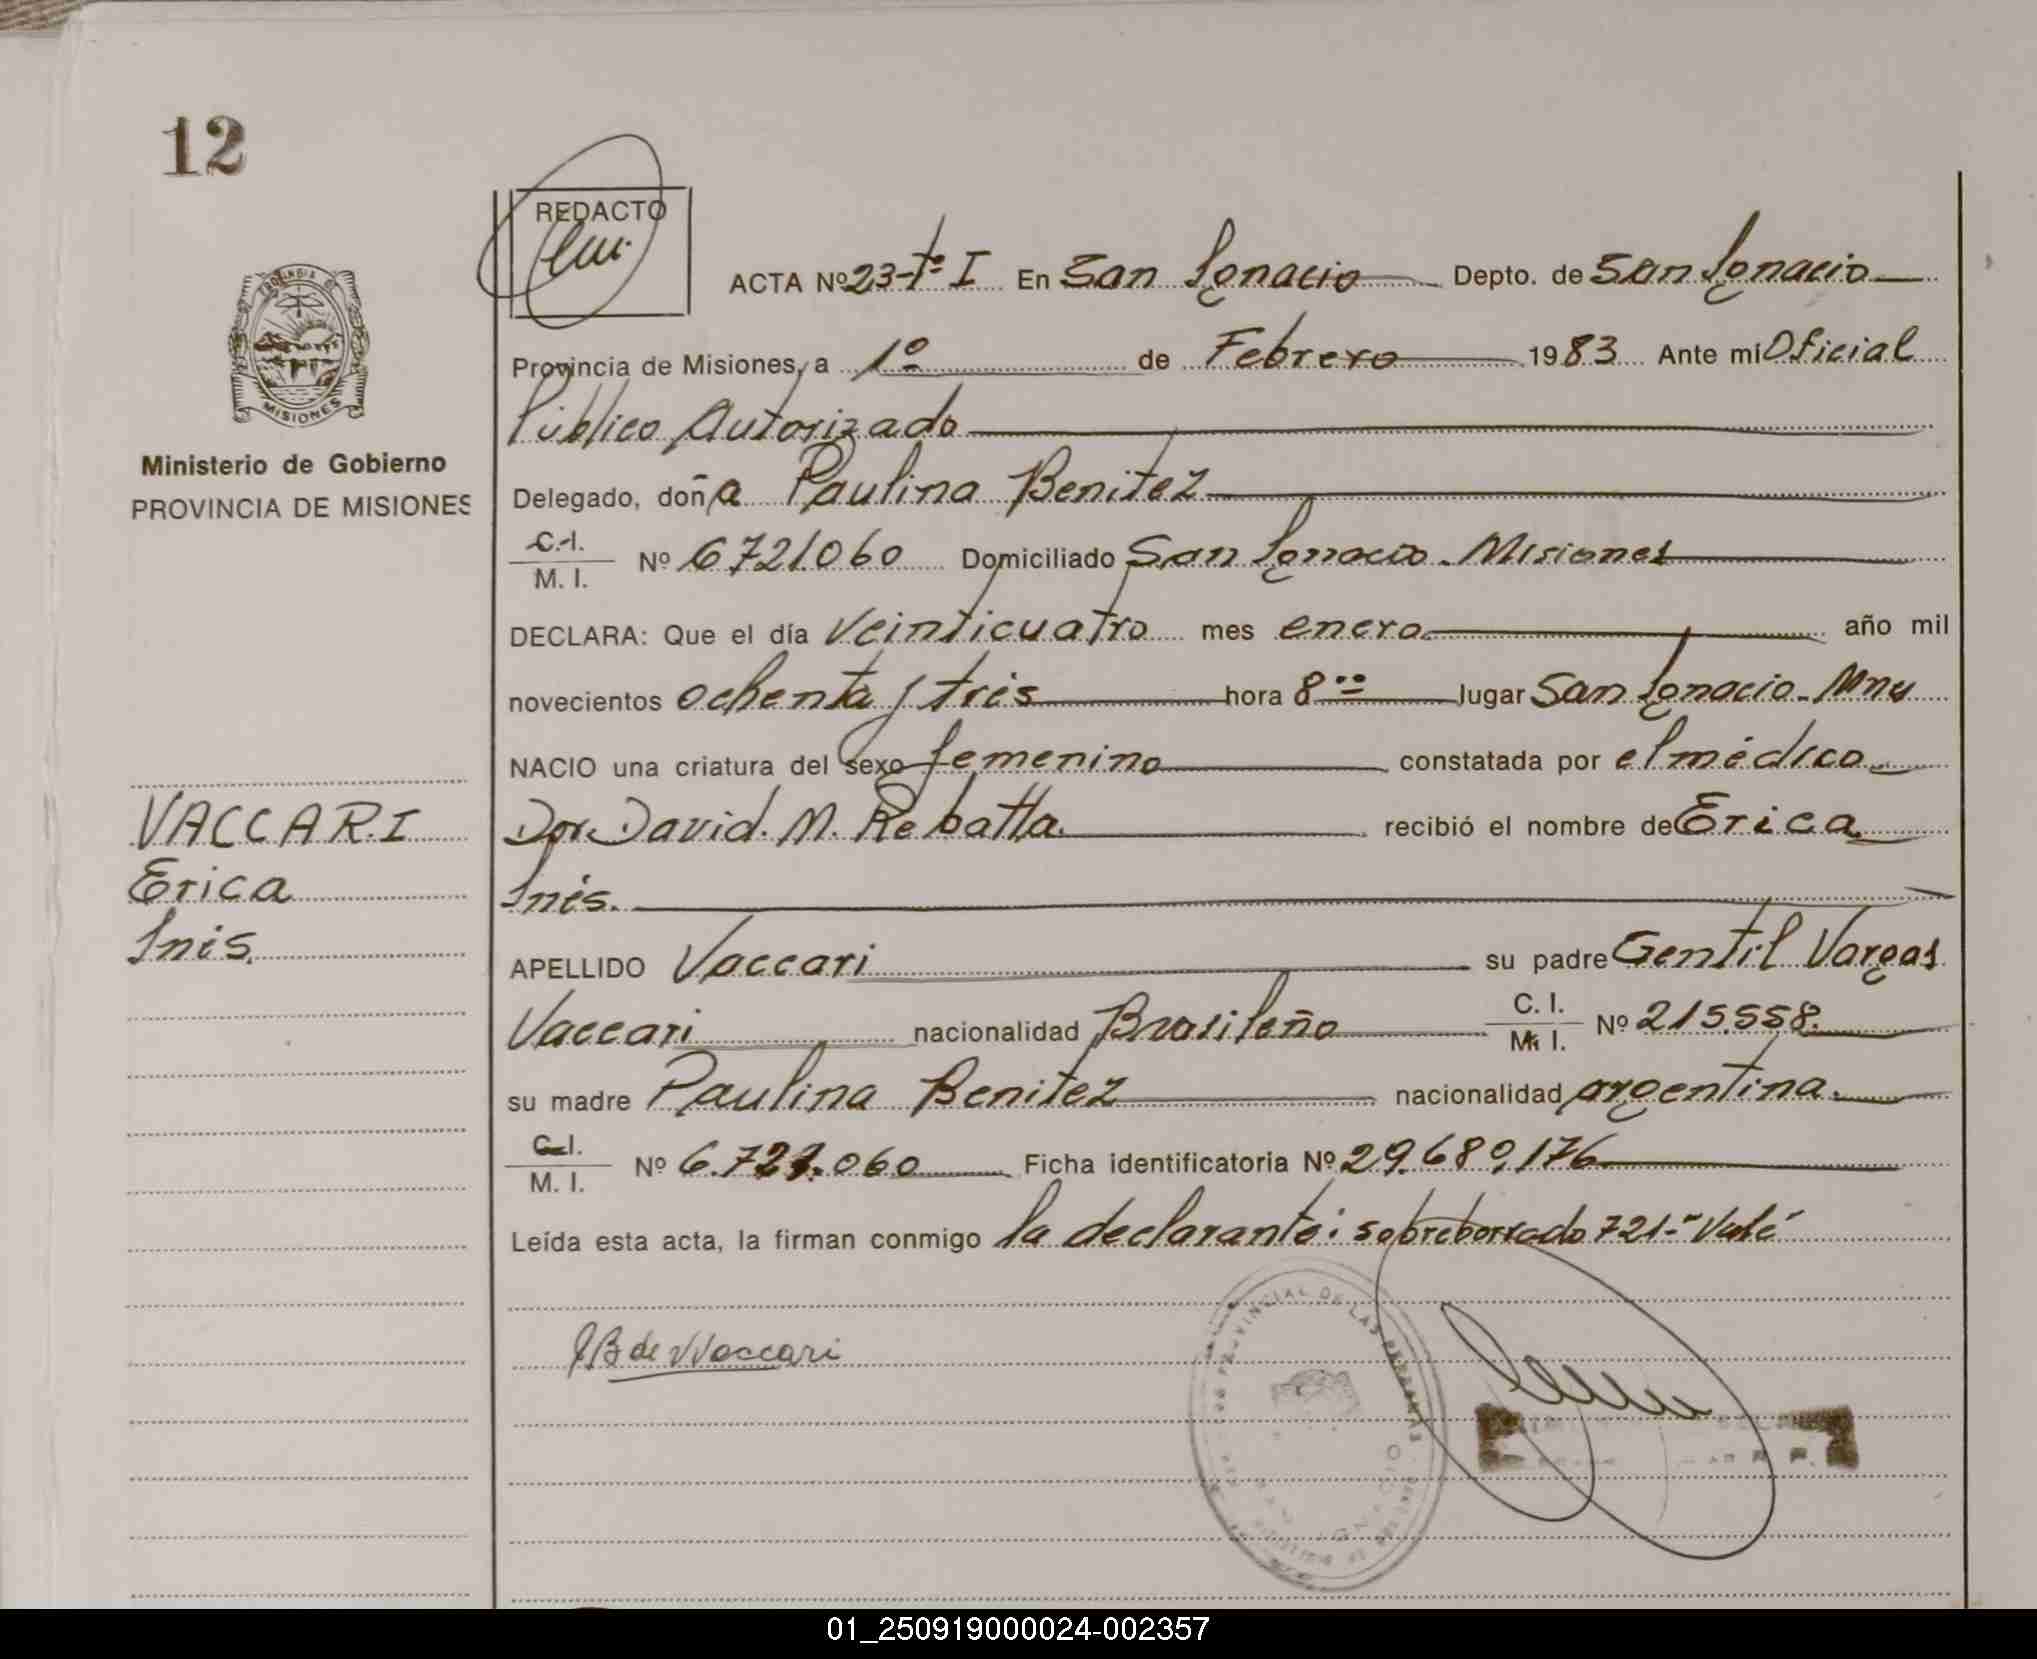 12
REDACTO
ACTA Nº 23-Tº I En San Ignacio Depto. de San Ignacio
Provincia de Misiones, a 1º de Febrero 1983 Ante mí Oficial
Público Autorizado
Delegado, doña Paulina Benitez
C.I. / M. I. Nº 6721060 Domiciliado San Ignacio. Misiones
DECLARA: Que el día Veinticuatro mes enero. año mil
novecientos ochenta y tres hora 8 oo lugar San Ignacio. Mnes
NACIO una criatura del sexo femenino constatada por el médico
Dor. David. M. Rebatta. recibió el nombre de Erica
Inés.
APELLIDO Vaccari su padre Gentil Vargas
Vaccari nacionalidad Brasileño C. I. / M. I. Nº 215.558.
su madre Paulina Benitez nacionalidad argentina.
C.I. / M. I. Nº 6.721.060 Ficha identificatoria Nº 29.689.176
Leída esta acta, la firman conmigo la declarante: sobreborrado 721-"Vale"
PROVINCIA MISIONES
Ministerio de Gobierno
PROVINCIA DE MISIONES
VACCARI
Erica
Inés.
PB de Vaccari
PROVINCIAL DE LAS PERSONAS
SAN IGNACIO
01_250919000024-002357